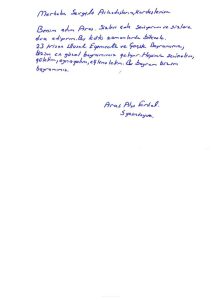 Merhaba Sevgili Arkadaşlarım, Kardeşlerim
Benim adım Aras. Sizleri çok seviyorum ve sizlere
dua ediyorum. Bu kötü zamanlarda bitecek.
23 Nisan Ulusal Egemenlik ve Çocuk Bayramımız,
bizim en güzel bayramımız geliyor. Hepimiz sevinelim,
gülelim, oynayalım, eğlenelim. Bu bayram bizim
bayramımız.
Aras Alp